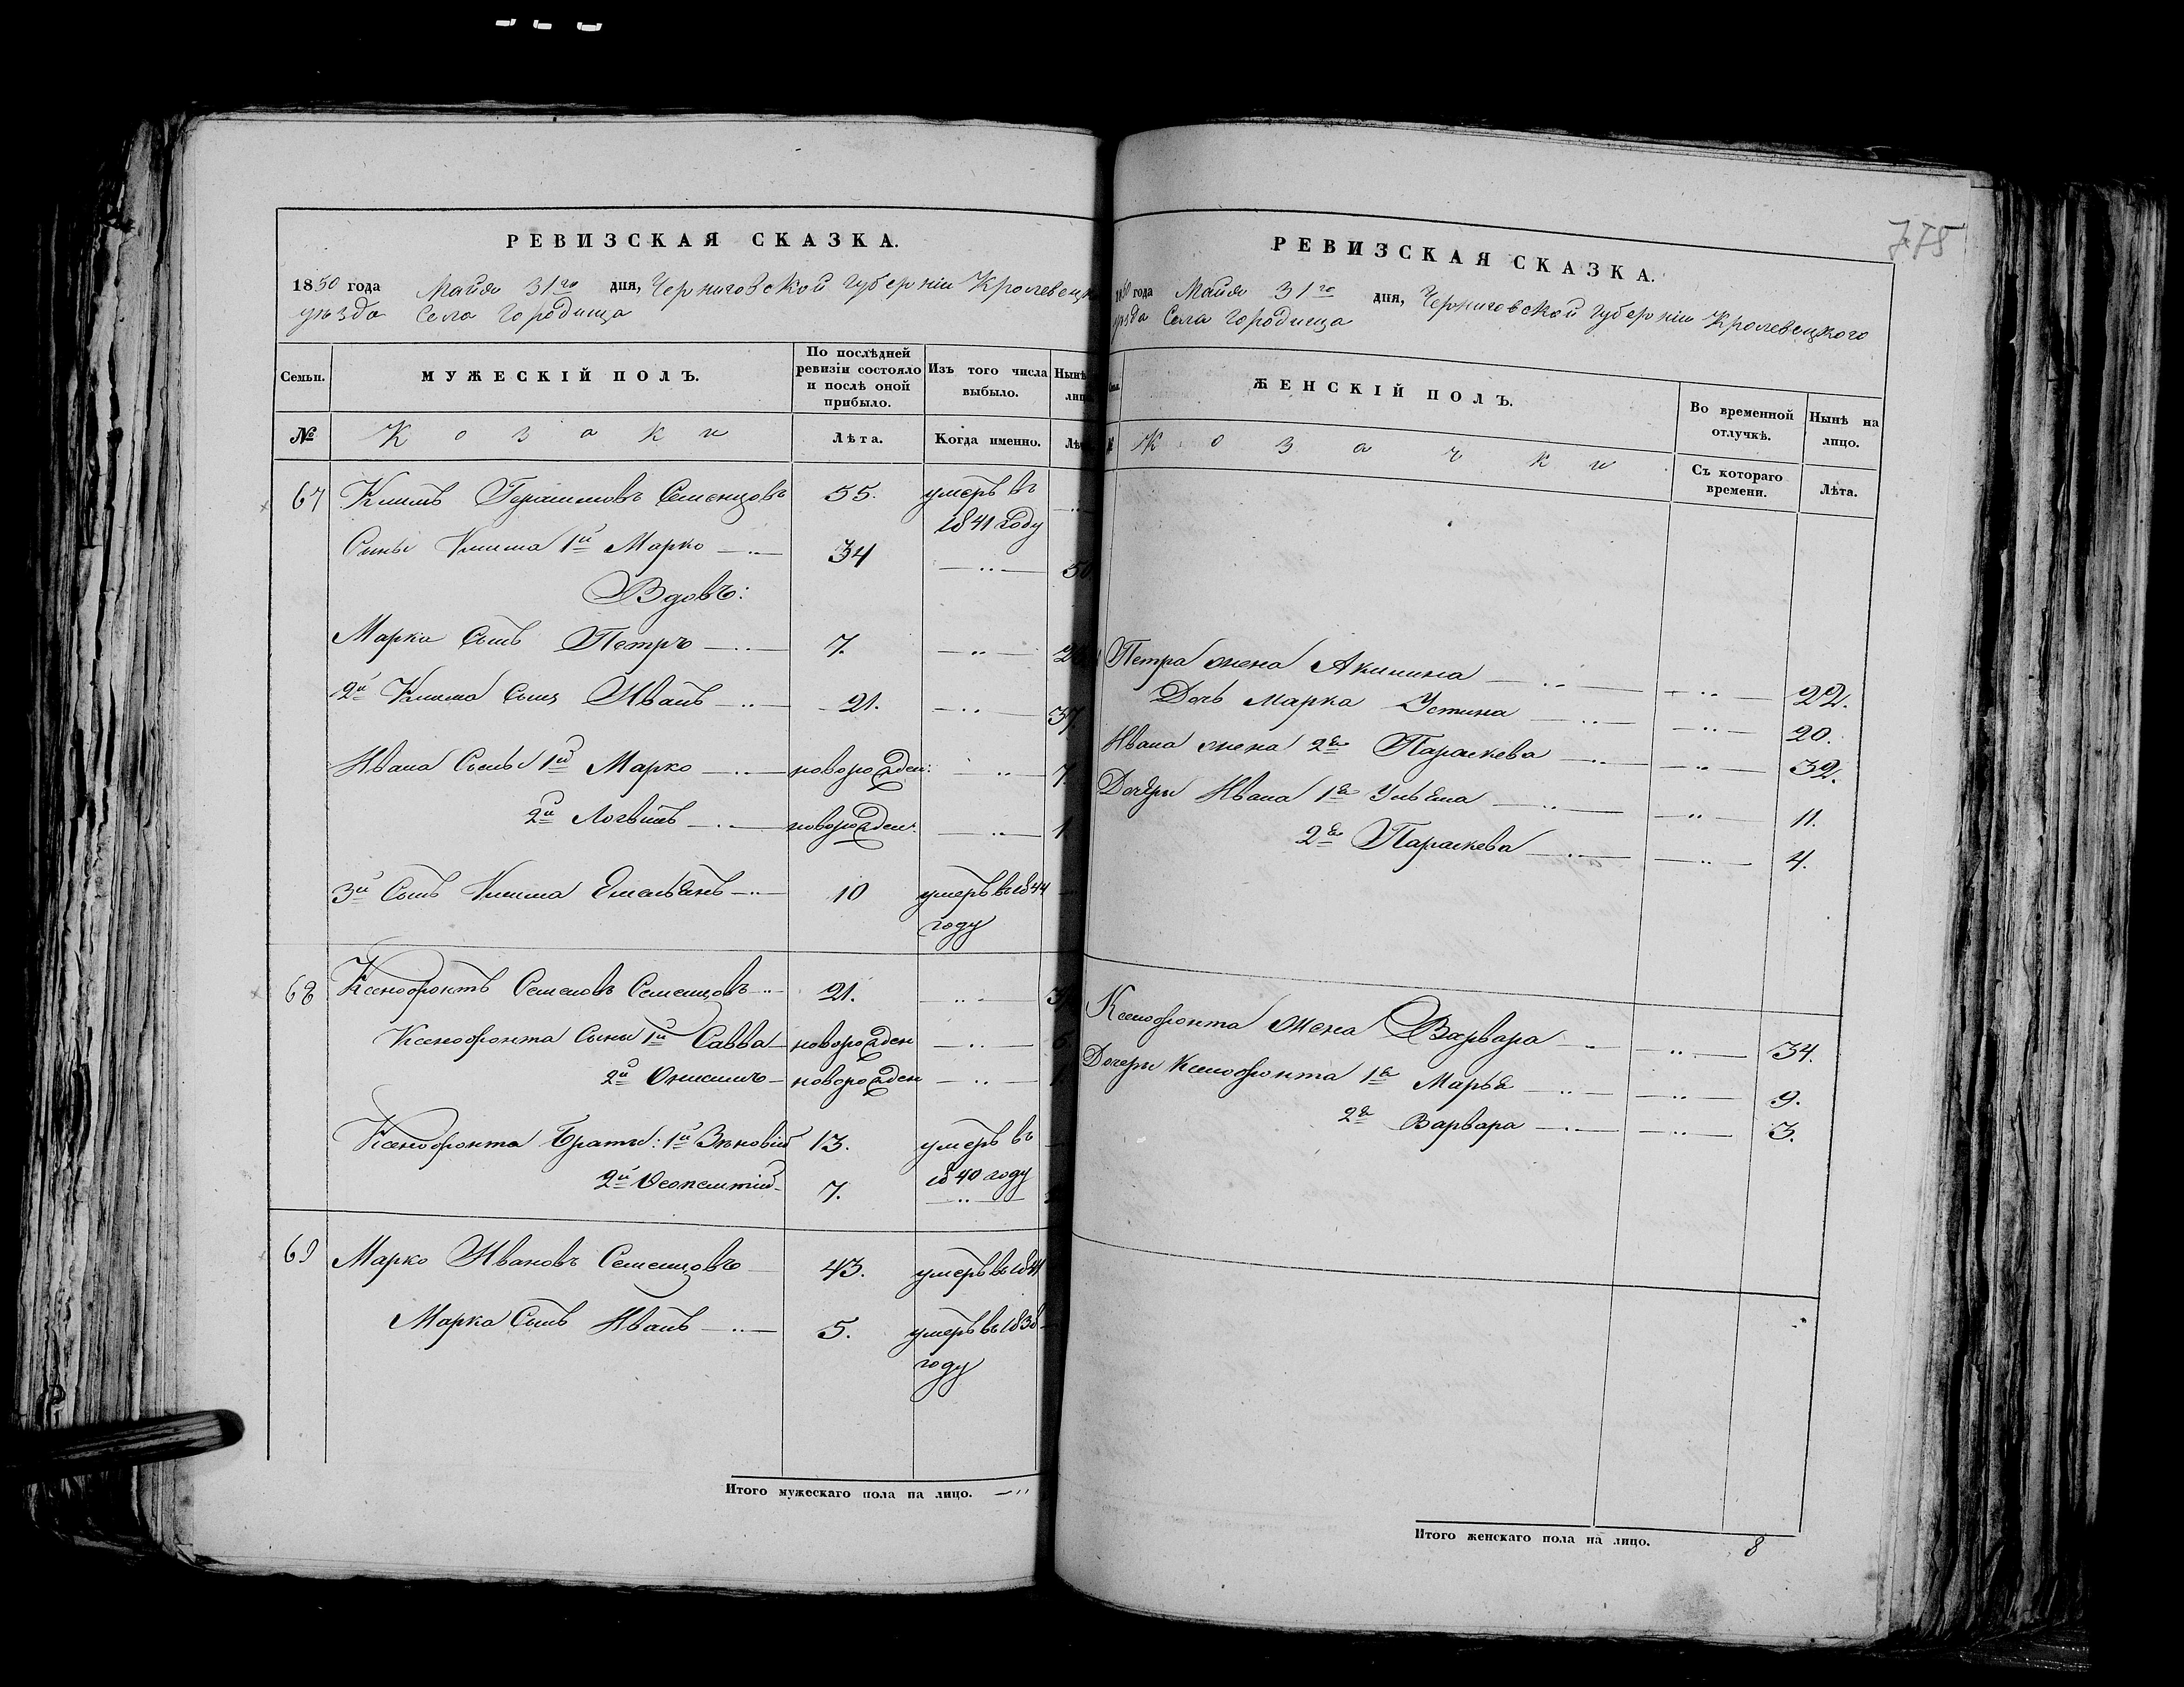 РЕВИЗСКАЯ СКАЗКА.
1850 года Майя 31го дня, Черниговской губерніи Кролевец
уѣзда Села Городища
Семьи. МУЖЕСКІЙ ПОЛЪ. По послѣдней ревизіи состояло и послѣ оной прибыло. Изъ того числа выбыло. Нынѣ
№ Козаки Лѣта. Когда именно.
67 Климъ Герасимовъ Семенцовъ 55. умеръ въ
1841 году
Сины Клима 1й Марко — 34 — 50
Вдовъ:
Марка Сынъ Петръ — 7. —
2й Клима Сынъ Иванъ — 21. — 37
Ивана Сыны 1й Марко — новорожден: — 7.
2й Логвинъ — новорожден: — 1
3й Сынъ Клима Емельянъ — 10 умеръ въ 1844
году
68 Ксенофонтъ Семеновъ Семенцовъ — 21. —
Ксенофонта Сыны 1й Савва — новорожден — 6
2й Онисимъ — новорожден —
Ксенофонта Браты: 1й Зѣновій 13. умеръ въ
1840 году
2й 7. —
69 Марко Ивановъ Семенцовъ 43. умеръ въ 1841
Марка Сынъ Иванъ — 5. умеръ въ 1838
году
Итого мужескаго пола на лицо. —
775
РЕВИЗСКАЯ СКАЗКА.
1850 года Майя 31го дня, Черниговской губерніи Кролевецкого
уѣзда Села Городища
ЖЕНСКІЙ ПОЛЪ. Во временной отлучкѣ. Нынѣ на лицо.
№ Козачки Съ котораго времени. Лѣта.
Петра жена Акилина — — 22.
Дочь Марка Устина — — 20.
Ивана жена 2я Параскева — — 32.
Дочери Ивана 1я Ульяна — — 11.
2я Параскева — — 4.
Ксенофонта жена Варвара — — 34.
Дочери Ксенофонта 1я Марья — — 9.
2я Варвара — — 3.
Итого женскаго пола на лицо. 8